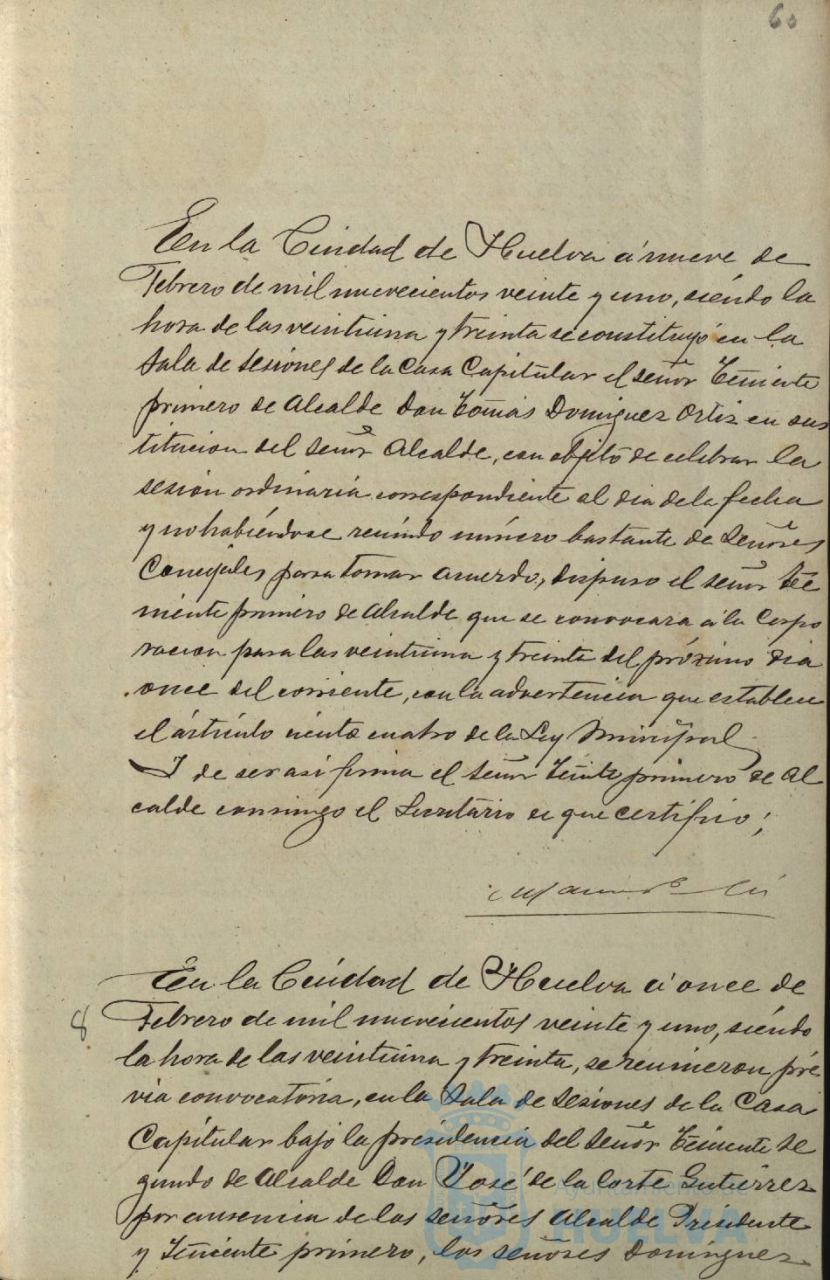 60
En la Ciudad de Huelva á nueve de
Febrero de mil nuevecientos veinte y uno, siéndo la
hora de las veintiuna y treinta se constituyó en la
Sala de Sesiones de la Casa Capitular el señor Teniente
primero de Alcalde Don Tomás Dominguez Ortiz en sus
titucion del señor Alcalde, con objeto de celebrar la
sesión ordinaria correspondiente al dia de la fecha
y no habiéndose reunido número bastante de Señores
Concejales para tomar acuerdo, dispuso el señor Te
niente primero de Alcalde que se convocara á la Corpo
racion para las veintiuna y treinta del próximo dia
once del corriente, con la advertencia que establece
el artículo ciento cuatro de la Ley Municipal
Y de ser asi firma el señor Tente primero de Al
calde conmigo el Secretario de que certifico;
En la Ciudad de Huelva á once de
8
Febrero de mil nuevecientos veinte y uno, siéndo
la hora de las veintiuna y treinta, se reunieron pré
via convocatoria, en la Sala de Sesiones de la Casa
Capitular bajo la presidencia del Señor Teniente Se
gundo de Alcalde Don José de la Corte Gutiérrez
por ausencia de los señores Alcalde Presidente
y Teniente primero, los señores Dominguez
HUELVA